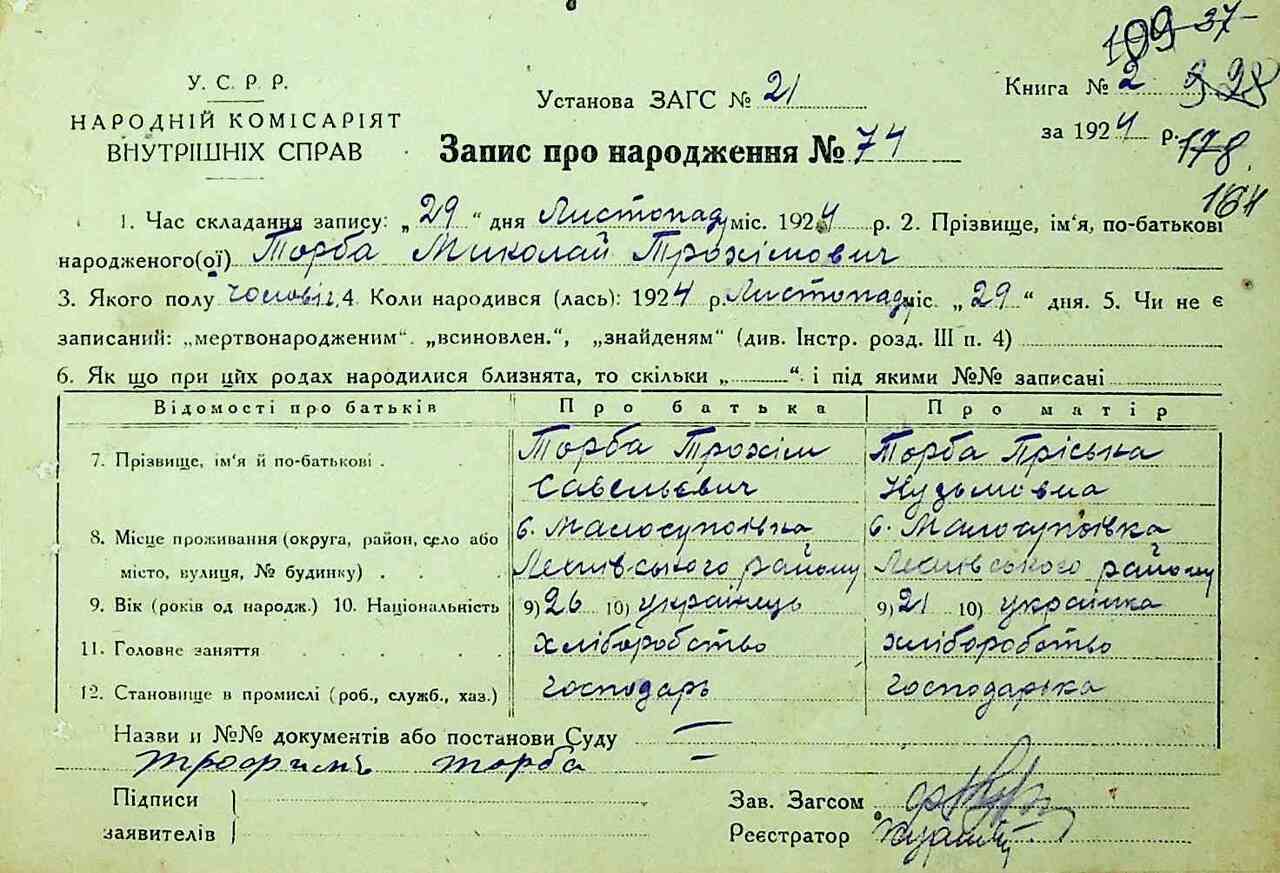 109 37
У. С. Р Р.
Установа ЗАГС № 21
Книга № 2 928
НАРОДНІЙ КОМІСАРІЯТ
ВНУТРІШНІХ СПРАВ
Запис про народження № 74
за 1924 р.
178
164
1. Час складання запису: „29“ дня Листопад міс. 1924 р. 2. Прізвище, ім‘я, по-батькові
народженого(ої) Торба Миколай Трохімович
3. Якого полу чоловіч. 4. Коли народився (лась): 1924 р. Листопад міс. „29“ дня. 5. Чи не є
записаний: „мертвонародженим“. „всиновлен.“, „знайденям“ (див. Інстр. розд. III п. 4)
6. Як що при цих родах народилися близнята, то скільки „ “ і під якими №№ записані
Відомості про батьків Про батька Про матір
7. Прізвище, ім‘я й по-батькові . Торба Трохім Торба Пріська
Савельєвич Кузьмовна
8. Місце проживання (округа, район, село або с. Малосупоївка с. Малосупоївка
місто, вулиця, № будинку) . району району
9. Вік (років од народж.) 10. Національність 9) 26 10) українець 9) 21 10) українка
11. Головне заняття хліборобство хліборобство
12. Становище в промислі (роб., служб., хаз.) господарь господарька
Назви и №№ документів або постанови Суду —
трофимъ торба —
Підписи
заявителів
Зав. Загсом
Реєстратор